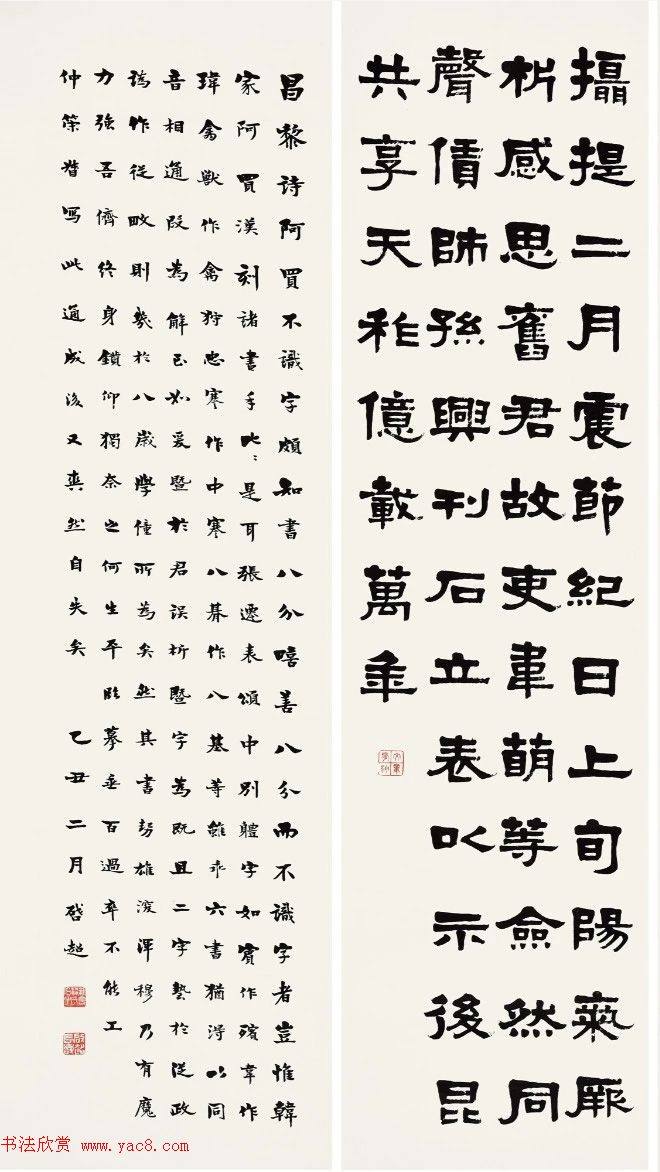 攝提二月震節紀日上旬陽氣厥
析感思舊君故吏韋萌等僉然同
聲僓師孫興刊石立表以示後昆
共享天祚億載萬年
昌黎詩阿買不識字頗知書八分嘻善八分而不識字者豈惟韓
家阿買漢刻諸書手比比是耳張遷表頌中別體字如賓作殯韋作
瑋禽獸作禽狩忠寒作中寒八朞作八基等雖乖六書猶得以同
音相通叚為解至如爰暨於君誤析暨字為既且二字藝於從政
譌作從畋則幾於八歲學僮所為矣然其書勁雄渾穆乃有魔
力強吾儕終身鑽仰獨奈之何生平臨摹垂百過卒不能工
仲策督寫此通成後又爽然自失矣 乙丑二月啓超
书法欣赏 www.yac8.com